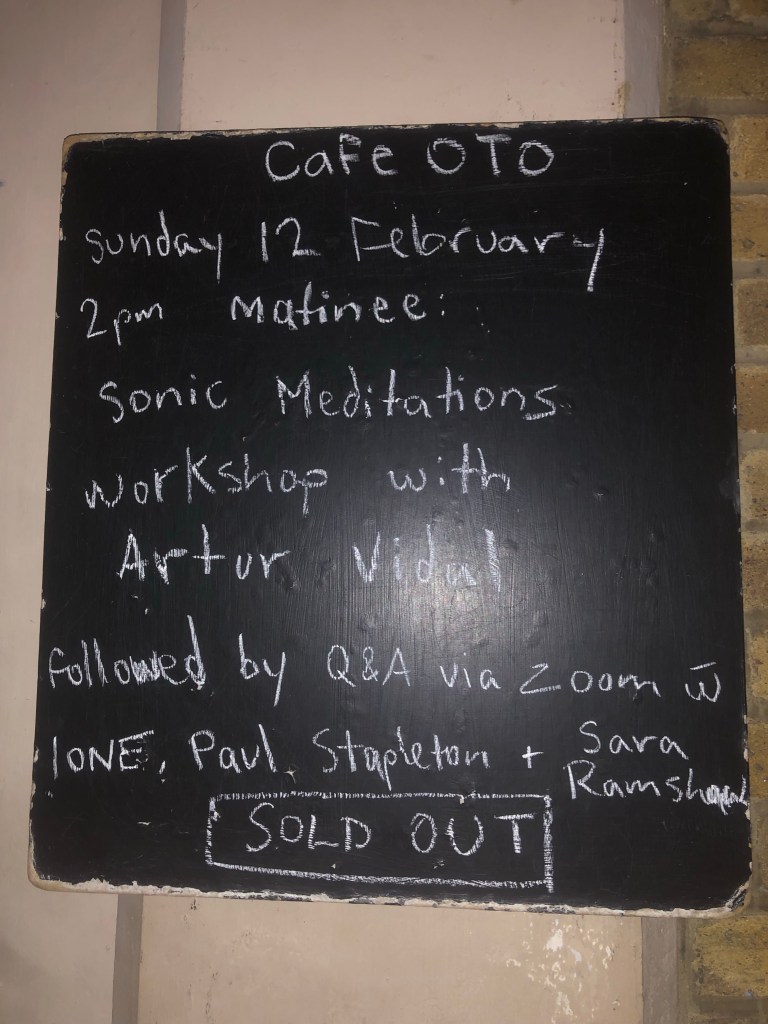 Cafe OTO
Sunday 12 February
2pm Matinee:
Sonic Meditations
Workshop with
Artur Vidal
followed by Q&A via Zoom w̄
IONE, Paul Stapleton + Sara
Ramshaw
SOLD OUT